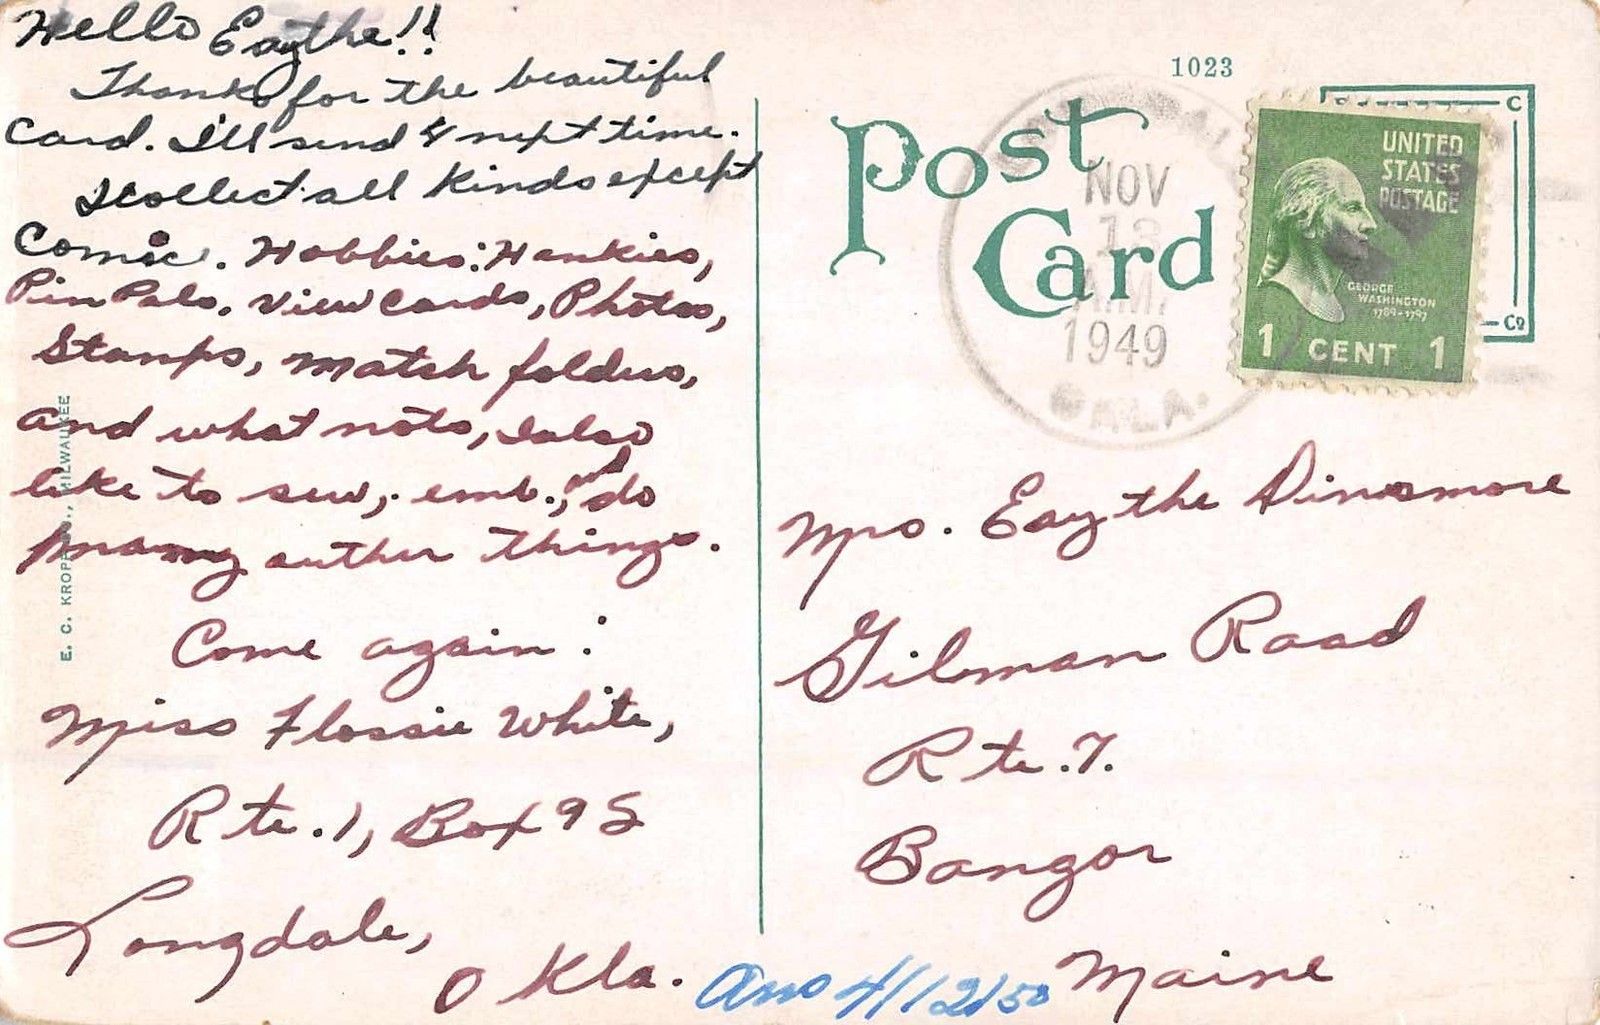 Hello Eaythe!!
Thanks for the beautiful
Card. I'll send 4 next time.
I collect all Kinds except
Comic. Hobbies: Hankies,
Pin Pals, View Cards, Photos,
Stamps, match folders,
and what nots, I also
like to sew, emb., and do
many outher things.
Come again:
Miss Flossie White,
Rte. 1, Box 95
Longdale,
Okla.
Ans 4/12/50
E. C. KROPP CO., MILWAUKEE
1023
Post
Card
C
Co
NOV
A.M.
1949
OKLA.
UNITED
STATES
POSTAGE
GEORGE
WASHINGTON
1789-1797
1 CENT 1
Mrs. Eaythe Dinsmore
Gilman Road
Rte. 7.
Bangor
Maine